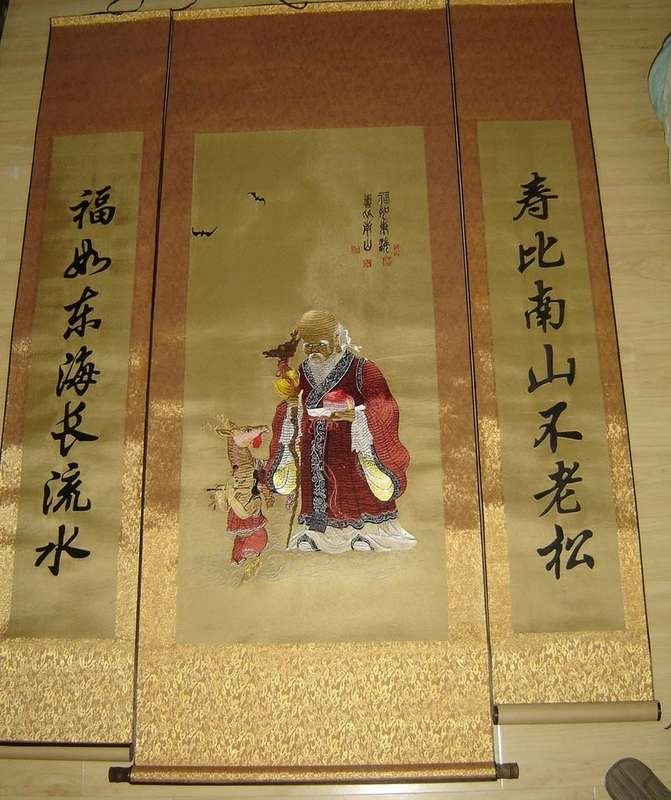 寿比南山不老松
福如東海
壽比南山
福如东海长流水